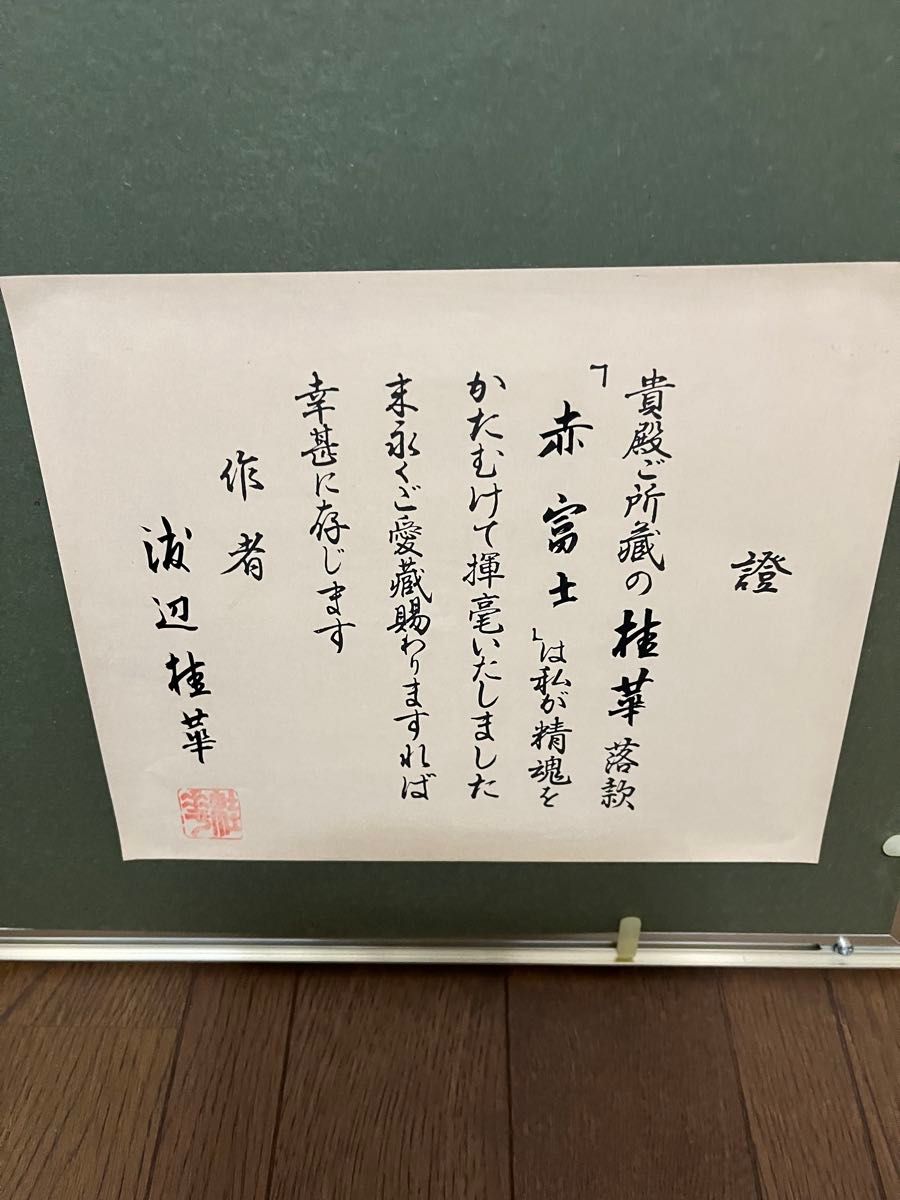 證
貴殿ご所蔵の桂華落款
「赤富士」は私が精魂を
かたむけて揮毫いたしました
末永くご愛蔵賜わりますれば
幸甚に存じます
作者
渡辺桂華